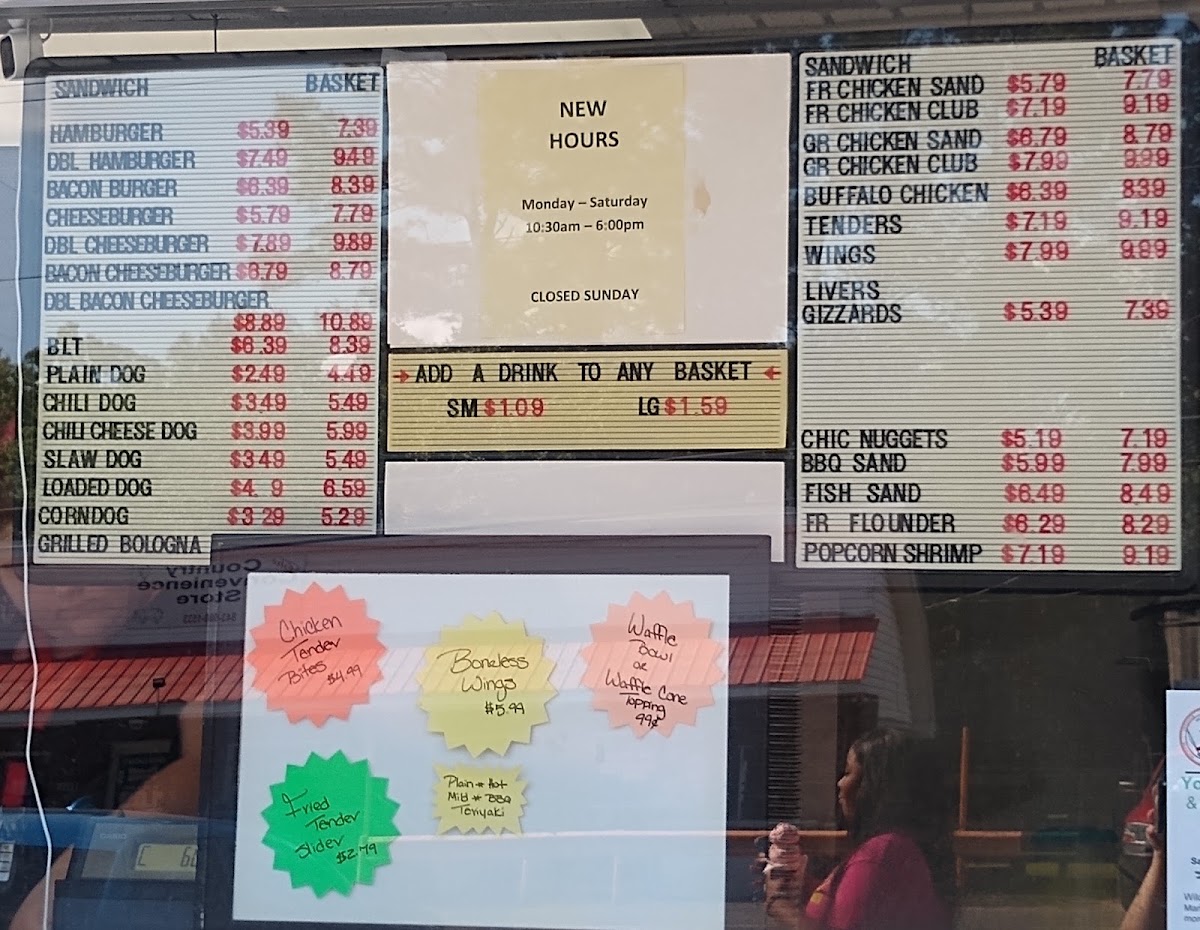 SANDWICH BASKET
HAMBURGER $5.39 7.39
DBL HAMBURGER $7.49 949
BACON BURGER $6.39 8.39
CHEESEBURGER $5.79 7.79
DBL CHEESEBURGER $7.89 9.89
BACON CHEESEBURGER $6.79 8.79
DBL BACON CHEESEBURGER
$8.89 10.89
BLT $6.39 8.39
PLAIN DOG $2.49 4.49
CHILI DOG $3.49 5.49
CHILI CHEESE DOG $3.99 5.99
SLAW DOG $349 5.49
LOADED DOG $4. 9 6.59
CORNDOG $3 29 5.29
GRILLED BOLOGNA
NEW
HOURS
Monday – Saturday
10:30am – 6:00pm
CLOSED SUNDAY
ADD A DRINK TO ANY BASKET
SM $1.09 LG $1.59
SANDWICH BASKET
FR CHICKEN SAND $5.79 7.79
FR CHICKEN CLUB $7.19 9.19
GR CHICKEN SAND $6.79 8.79
GR CHICKEN CLUB $7.99 9.99
BUFFALO CHICKEN $6.39 839
TENDERS $7.19 9.19
WINGS $7.99 9.89
LIVERS
GIZZARDS $5.39 7.39
CHIC NUGGETS $5.19 7.19
BBQ SAND $5.99 7.99
FISH SAND $6.49 8.49
FR FLOUNDER $6.29 8.29
POPCORN SHRIMP $7.19 9.19
Country
Convenience
Store
Chicken
Tender
Bites $4.99
Boneless
Wings
$5.99
Waffle
Bowl
or
Waffle Cone
Topping
99¢
Fried
Tender
Slider
$2.79
Plain * Hot
Mild * BBQ
Teriyaki
CASIO
&